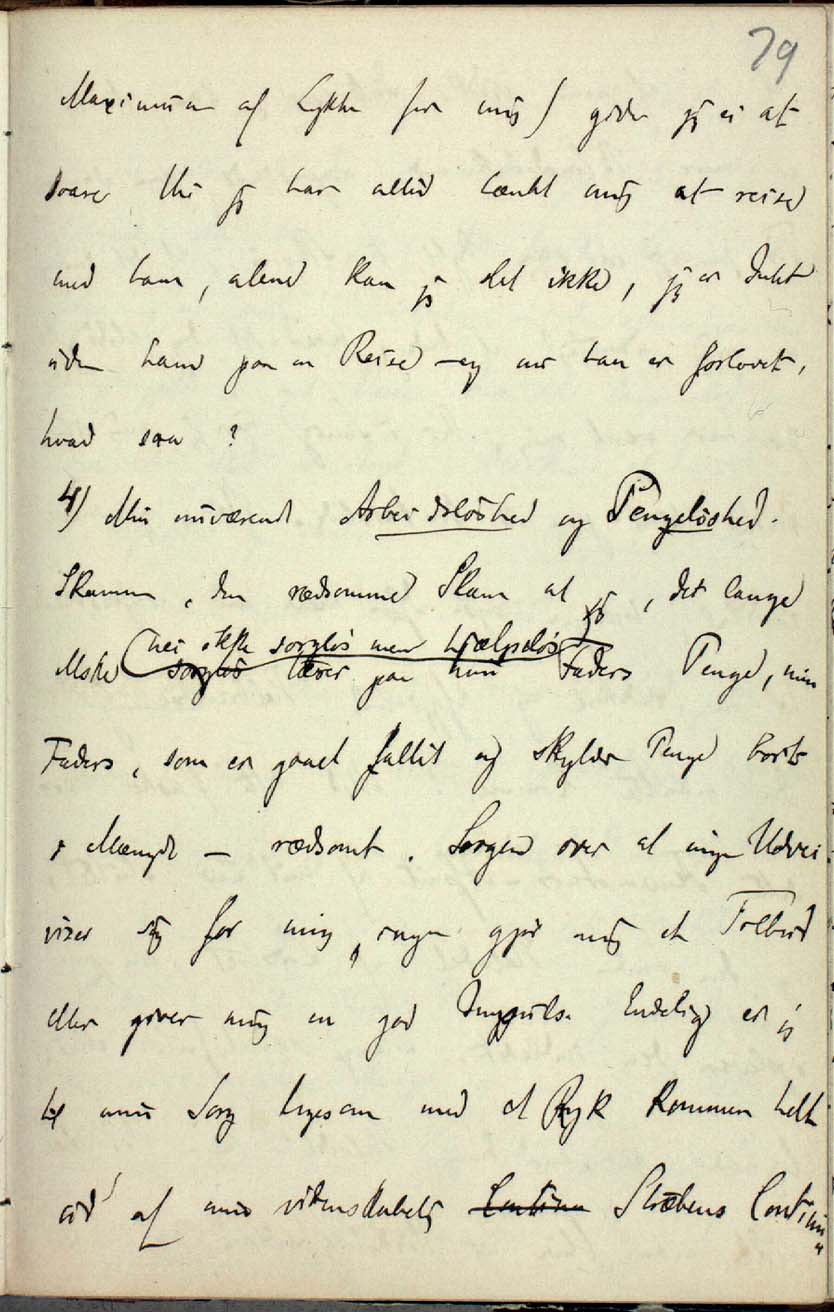 79
Maximum af Lykke for mig) gider jeg ei at
svare thi jeg har altid tænkt mig at reise
med ham, alene kan jeg det ikke, jeg er Intet
uden ham paa en Reise – og nu han er forlovet,
hvad saa?
4) Min nuværende Arbeidsløshed og Pengeløshed.
Skammen, den rædsomme Skam at jeg, det lange
(nei ikke sorgløs men hjælpeløs)
sorgløs lever paa min Faders Penge, min
Faders, som er gaaet fallit og skylder Penge bort
i Mængde – rædsomt. Sorgen over at ingen Udvei
viser sig for mig, ingen gjør mig et Tilbud
eller giver mig en god Impuls. Endelig er jeg
til min Sorg ligesom med et Ryk kommen helt
ud af min videnskabelig Stræbens Continu